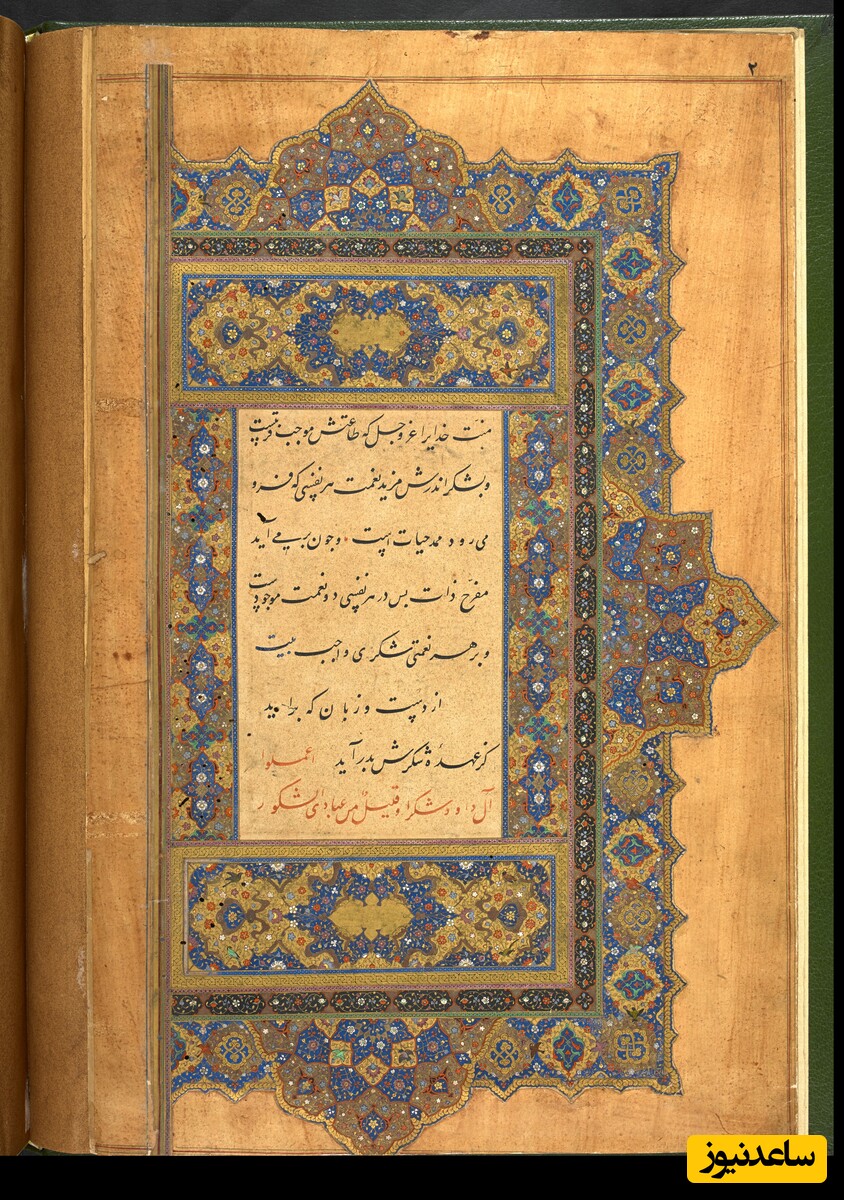 ۲
منت خدایرا عز وجل که طاعتش موجب قربتست
و بشکر اندرش مزید نعمت هر نفسی که فرو
می رود ممد حیات است و چون بر می آید
مفرح ذات بس در هر نفسی دو نعمت موجودست
و بر هر نعمتی شکری واجب بیت
از دست و زبان که براید
کز عهدهٔ شکرش بدر آید اعملوا
آل داود شکرا و قلیل من عبادی الشکور
ساعدنیوز